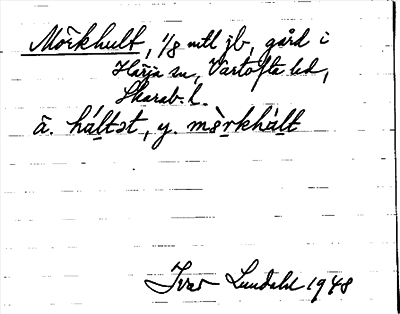 Mörkhult, 1/8 mtl jb, gård i
Härja sn, Vartofta hd,
Skarab. l.
ä. háltət, y. mö̀rkhált
Ivar Lundahl 1948